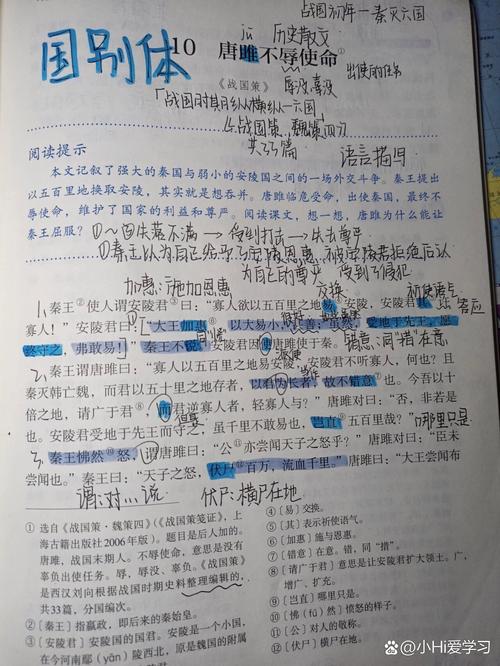 战国初年一秦灭六国
jū 历史散文
国别体
10 唐雎不辱使命①
《战国策》
出使的任务
辱没,
阅读提示
语言描写
共33篇
本文记叙了强大的秦国与弱小的安陵国之间的一场外交斗争。秦王提出
以五百里地换取安陵,其实就是想吞并。唐雎临危受命,出使秦国,最终不
辱使命,维护了国家的利益和尊严。阅读课文,想一想,唐雎为什么能让
秦王屈服?
加惠:施加恩惠
交换
秦王②使人谓安陵君③曰:“寡人欲以五百里之地易④安陵,安陵君其⑤许
寡人!”安陵君曰:“大王加惠⑥,以大易小,甚善;虽然,受地于先王,愿
终守之,弗敢易!”秦王不说。安陵君因使唐雎使于秦。
错意:同“措”在意
秦王谓唐雎曰:“寡人以五百里之地易安陵,安陵君不听寡人,何也?且
秦灭韩亡魏,而君以五十里之地存者,以君为长者,故不错意⑦也。今吾以十
倍之地,请广于君⑧,而君逆寡人者,轻寡人与?”唐雎对曰:“否,非若是
也。安陵君受地于先王而守之,虽千里不敢易也,岂直⑨五百里哉?”
哪里只是
秦王怫然⑩怒,谓唐雎曰:“公⑪亦尝闻天子之怒乎?”唐雎对曰:“臣未
尝闻也。”秦王曰:“天子之怒,伏尸⑫百万,流血千里。”唐雎曰:“大王尝闻
谓:对…说
伏尸:横尸在地
① 选自《战国策·魏策四》(《战国策笺证》,上
海古籍出版社2006年版)。题目是后人加的。
唐雎,战国末期人。不辱使命,意思是没有
辜负出使任务。辱,辱没、辜负。《战国策》
是西汉刘向根据战国时期史料整理编辑的,
共33篇,分国编次。
②[秦王]指嬴政,即后来的秦始皇。
③[安陵君]安陵国的国君。安陵是一个小国,
在今河南鄢(yān)陵西北,原是魏国的附属
④[易]交换。
⑤[其]表示祈使语气。
⑥[加惠]施与恩惠。
⑦[错意]在意。错,同“措”。
⑧[请广于君]意思是让安陵君扩大领土。广,
增广、扩充。
⑨[岂直]哪里只是。
⑩[怫(fú)然]愤怒的样子。
⑪[公]对人的敬称。
⑫[伏尸]横尸在地。
@小Hi爱学习